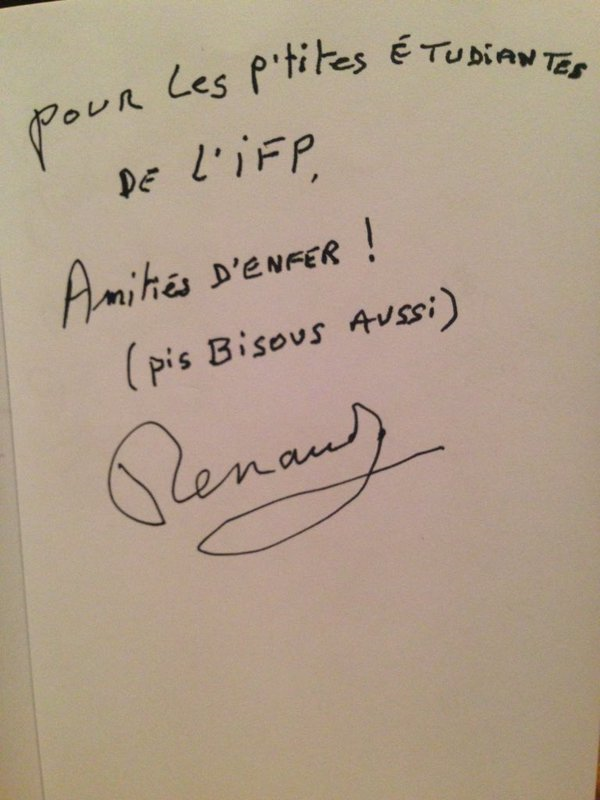 POUR Les p'tites ÉTUDIANTES
DE L'iFP,
Amitiés D'ENFER !
(pis Bisous AUSSi)
Renaud